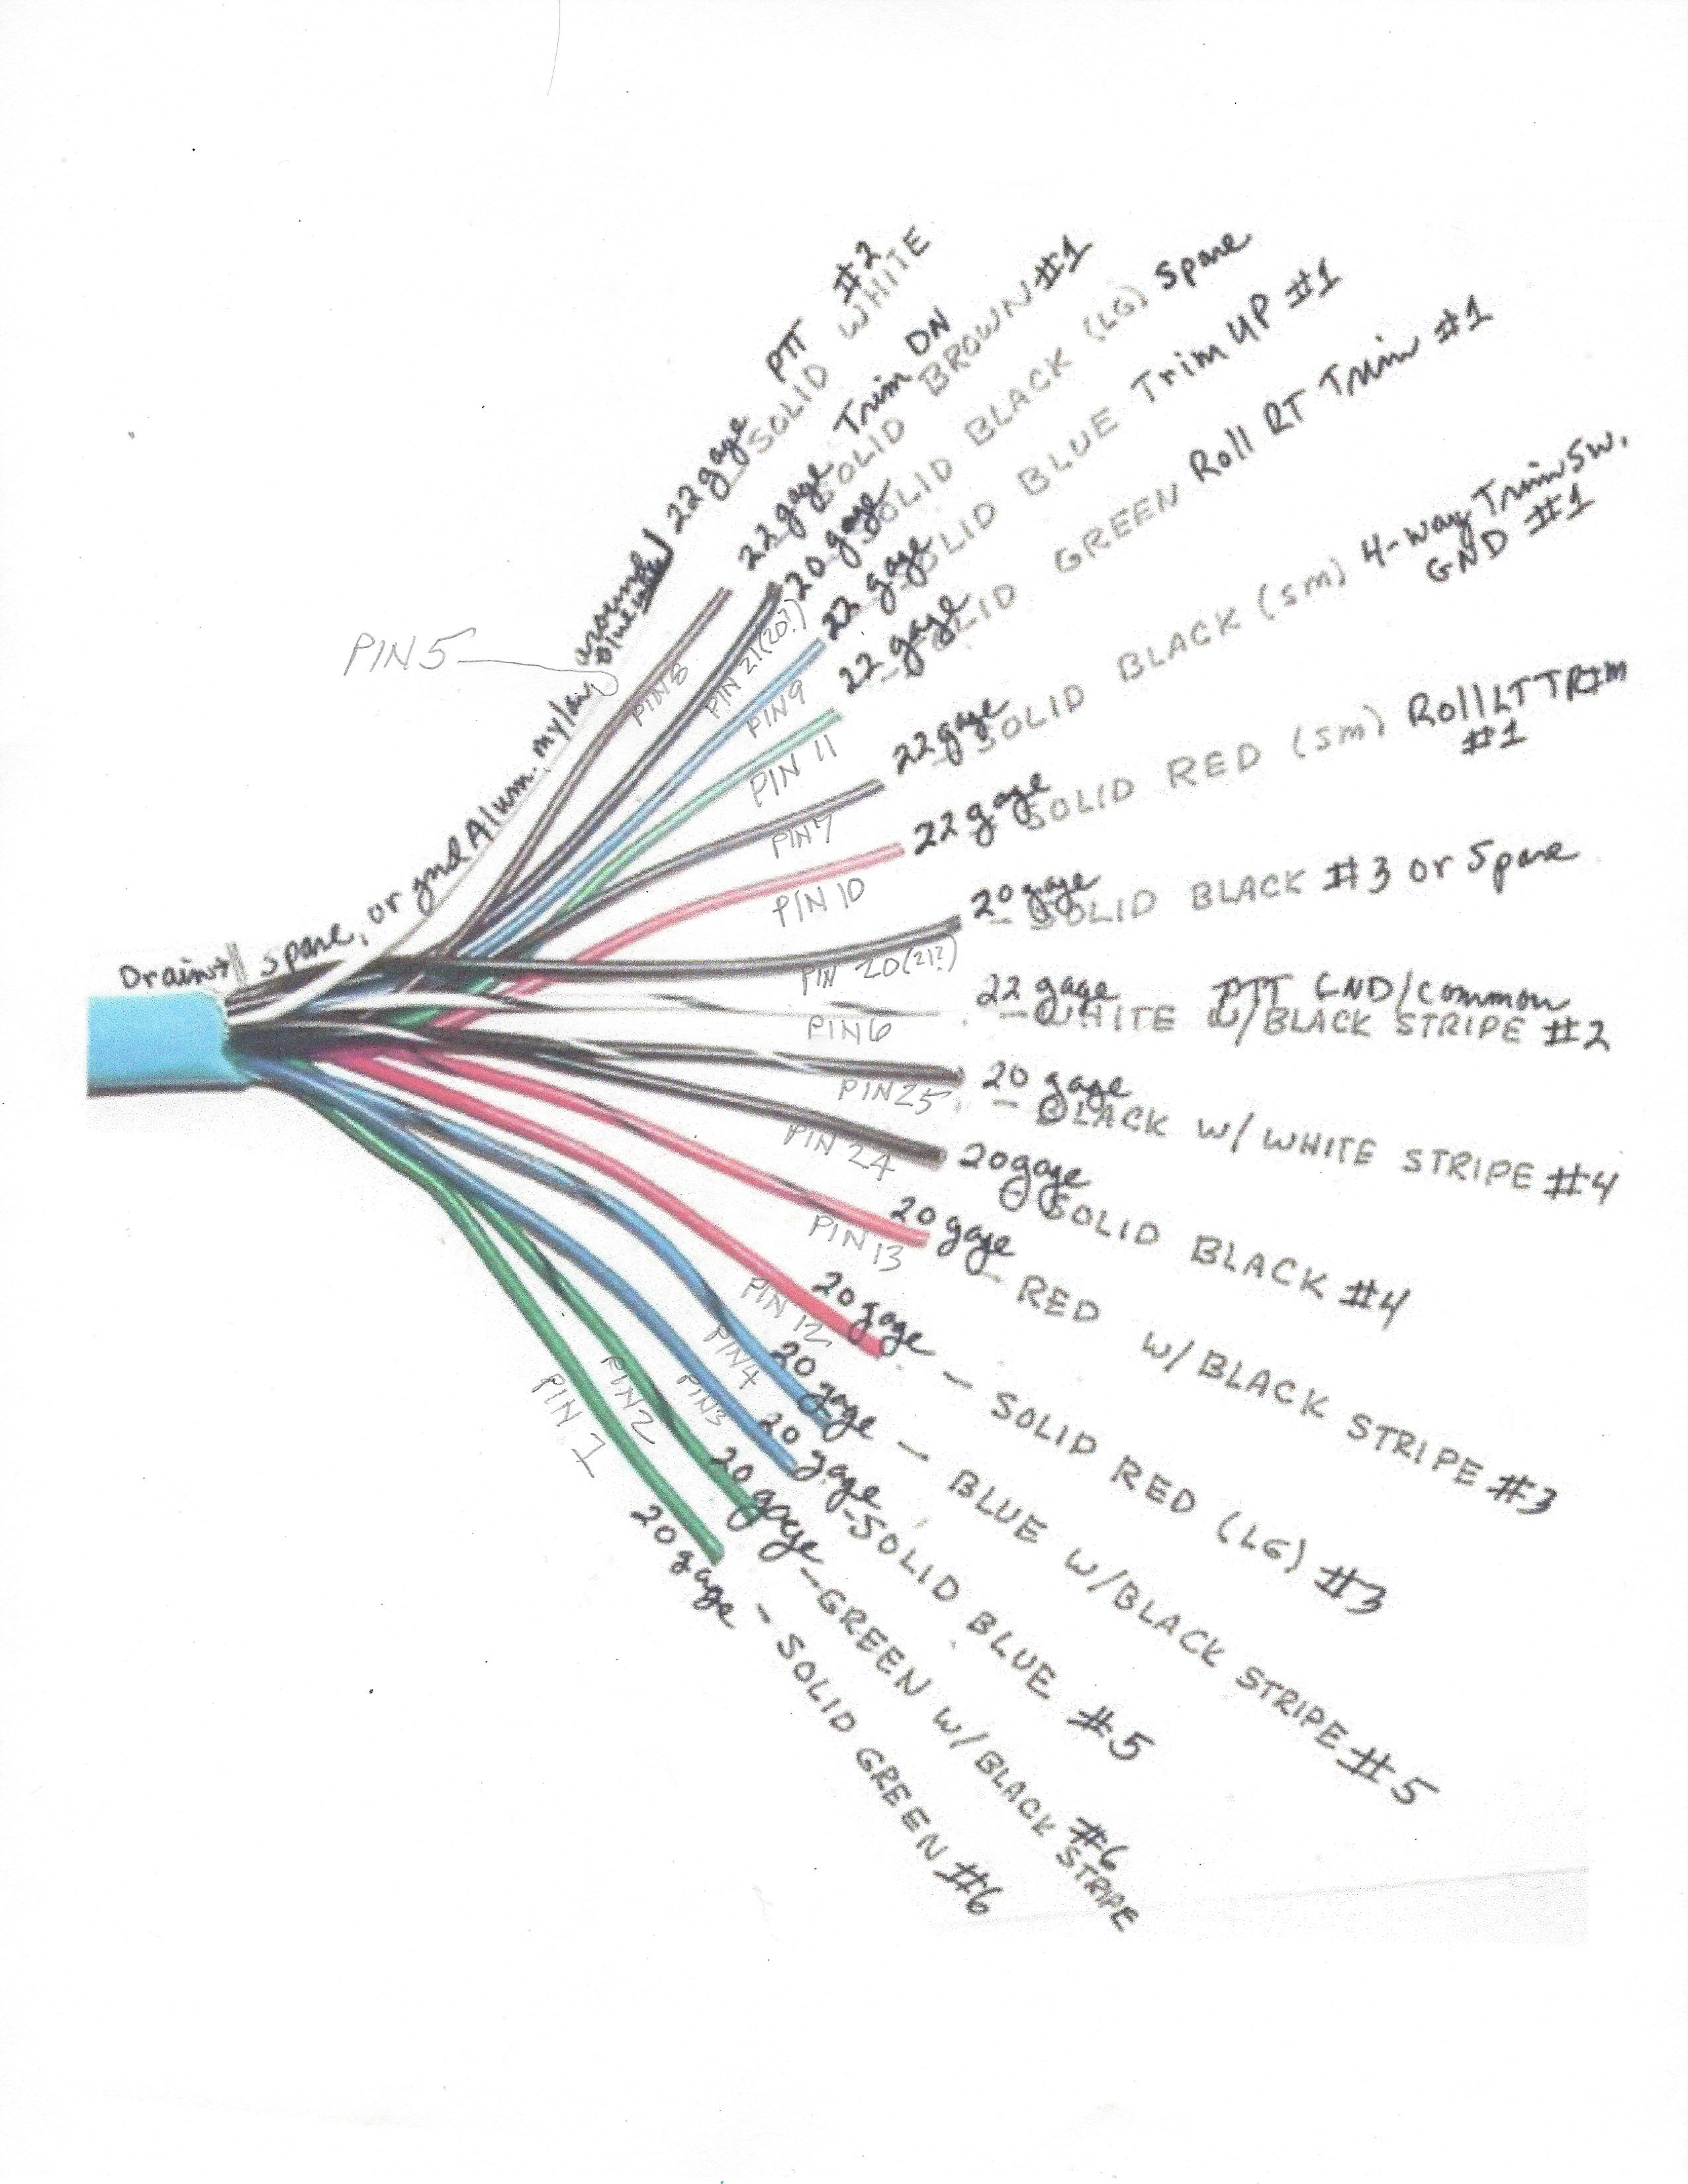 PTT #2
22 gage SOLID WHITE
Trim DN
22 gage SOLID BROWN #1
20 gage SOLID BLACK (LG) Spare
22 gage SOLID BLUE Trim UP #1
22 gage SOLID GREEN Roll RT Trim #1
22 gage SOLID BLACK (sm) 4-way Trim SW.
GND #1
22 gage SOLID RED (sm) Roll LT TRIM
#1
20 gage - SOLID BLACK #3 or Spare
22 gage PTT GND/common
- WHITE W/BLACK STRIPE #2
20 gage
- BLACK W/ WHITE STRIPE #4
20 gage
SOLID BLACK #4
20 gage - RED W/ BLACK STRIPE #3
20 gage - SOLID RED (LG) #3
20 gage - BLUE W/BLACK STRIPE #5
20 gage - SOLID BLUE #5
20 gage - GREEN W/ BLACK STRIPE #6
20 gage - SOLID GREEN #6
Drains + spare, or gnd Alum. mylar
around
blue
PIN 5
PIN 8
PIN 21(20?)
PIN 9
PIN 11
PIN 7
PIN 10
PIN 20(21?)
PIN 6
PIN 25
PIN 24
PIN 13
PIN 12
PIN 4
PIN 3
PIN 2
PIN 1